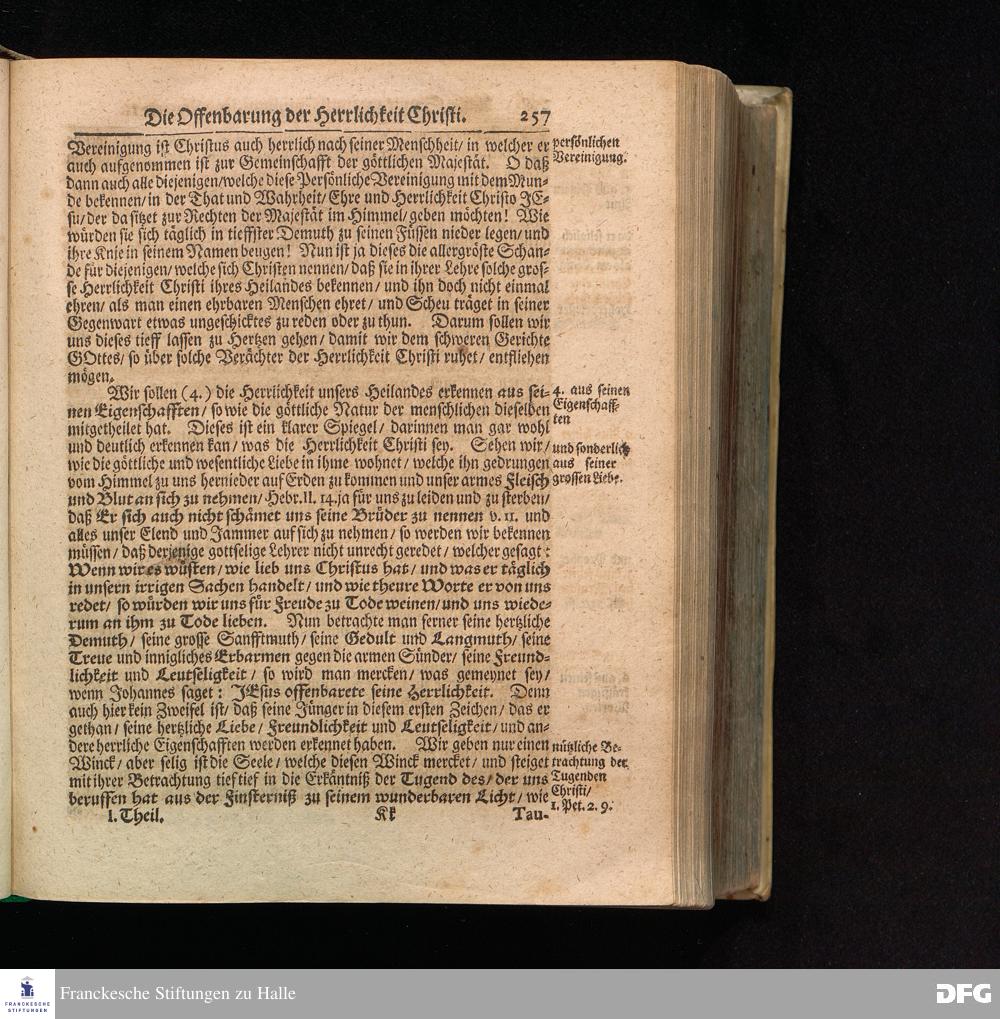 Die Offenbarung der Herrlichkeit Christi. 257
Vereinigung ist Christus auch herrlich nach seiner Menschheit/ in welcher er
auch aufgenommen ist zur Gemeinschafft der göttlichen Majestät. O daß
dann auch alle diejenigen/welche diese Persönliche Vereinigung mit dem Mun-
de bekennen/ in der That und Wahrheit/ Ehre und Herrlichkeit Christo JE-
su/ der da sitzet zur Rechten der Majestät im Himmel/ geben möchten! Wie
würden sie sich täglich in tieffster Demuth zu seinen Füssen nieder legen/ und
ihre Knie in seinem Namen beugen! Nun ist ja dieses die allergröste Schan-
de für diejenigen/ welche sich Christen nennen/ daß sie in ihrer Lehre solche gros-
se Herrlichkeit Christi ihres Heilandes bekennen/ und ihn doch nicht einmal
ehren/ als man einen ehrbaren Menschen ehret/ und Scheu träget in seiner
Gegenwart etwas ungeschicktes zu reden oder zu thun. Darum sollen wir
uns dieses tieff lassen zu Hertzen gehen/ damit wir dem schweren Gerichte
GOttes/ so über solche Verächter der Herrlichkeit Christi ruhet/ entfliehen
mögen.
Wir sollen (4.) die Herrlichkeit unsers Heilandes erkennen aus sei-
nen Eigenschafften/ so wie die göttliche Natur der menschlichen dieselben
mitgetheilet hat. Dieses ist ein klarer Spiegel/ darinnen man gar wohl
und deutlich erkennen kan/ was die Herrlichkeit Christi sey. Sehen wir/
wie die göttliche und wesentliche Liebe in ihme wohnet/ welche ihn gedrungen
vom Himmel zu uns hernieder auf Erden zu kommen und unser armes Fleisch
und Blut an sich zu nehmen/ Hebr. II. 14. ja für uns zu leiden und zu sterben/
daß Er sich auch nicht schämet uns seine Brüder zu nennen v. 11. und
alles unser Elend und Jammer auf sich zu nehmen/ so werden wir bekennen
müssen/ daß derjenige gottselige Lehrer nicht unrecht geredet/ welcher gesagt:
Wenn wir es wüsten/ wie lieb uns Christus hat/ und was er täglich
in unsern irrigen Sachen handelt/ und wie theure Worte er von uns
redet/ so würden wir uns für Freude zu Tode weinen/ und uns wiede-
rum an ihm zu Tode lieben. Nun betrachte man ferner seine hertzliche
Demuth/ seine grosse Sanfftmuth/ seine Gedult und Langmuth/ seine
Treue und innigliches Erbarmen gegen die armen Sünder/ seine Freund-
lichkeit und Leutseligkeit/ so wird man mercken/ was gemeynet sey/
wenn Johannes saget: JEsus offenbarete seine Herrlichkeit. Denn
auch hier kein Zweifel ist/ daß seine Jünger in diesem ersten Zeichen/ das er
gethan/ seine hertzliche Liebe/ Freundlichkeit und Leutseligkeit/ und an-
dere herrliche Eigenschafften werden erkennet haben. Wir geben nur einen
Winck/ aber selig ist die Seele/ welche diesen Winck mercket/ und steiget
mit ihrer Betrachtung tief tief in die Erkäntniß der Tugend des/ der uns
beruffen hat aus der Finsterniß zu seinem wunderbaren Licht/ wie
I. Theil. Kk Tau-
persönlichen
Vereinigung.
4. aus seinen
Eigenschaff-
ten
und sonderlich
aus seiner
grossen Liebe.
nützliche Be-
trachtung der
Tugenden
Christi/
1. Pet. 2. 9.
FRANCKESCHE
STIFTUNGEN
Franckesche Stiftungen zu Halle
DFG